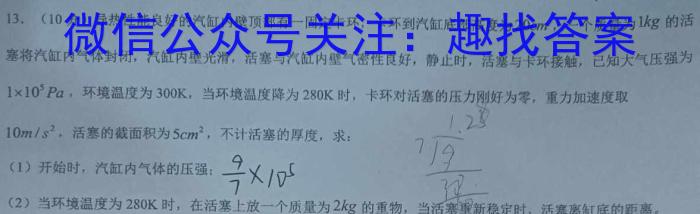 13．（10 导热性能良好的汽缸内壁顶部有一固定卡环，卡环到汽缸底 20cm 个质量为1kg 的活
微信公众号关注：趣找答案
塞将汽缸内气体封闭，汽缸内壁光滑，活塞与汽缸内壁气密性良好，静止时，活塞与卡环接触，已知大气压强为
1×10⁵Pa，环境温度为 300K，当环境温度降为 280K 时，卡环对活塞的压力刚好为零，重力加速度取
10m/s²，活塞的截面积为5cm²，不计活塞的厚度，求：
（1）开始时，汽缸内气体的压强；9/7 ×10⁵
（2）当环境温度为 280K 时，在活塞上放一个质量为2kg 的重物，当活塞重新稳定时，活塞离缸底的距离。